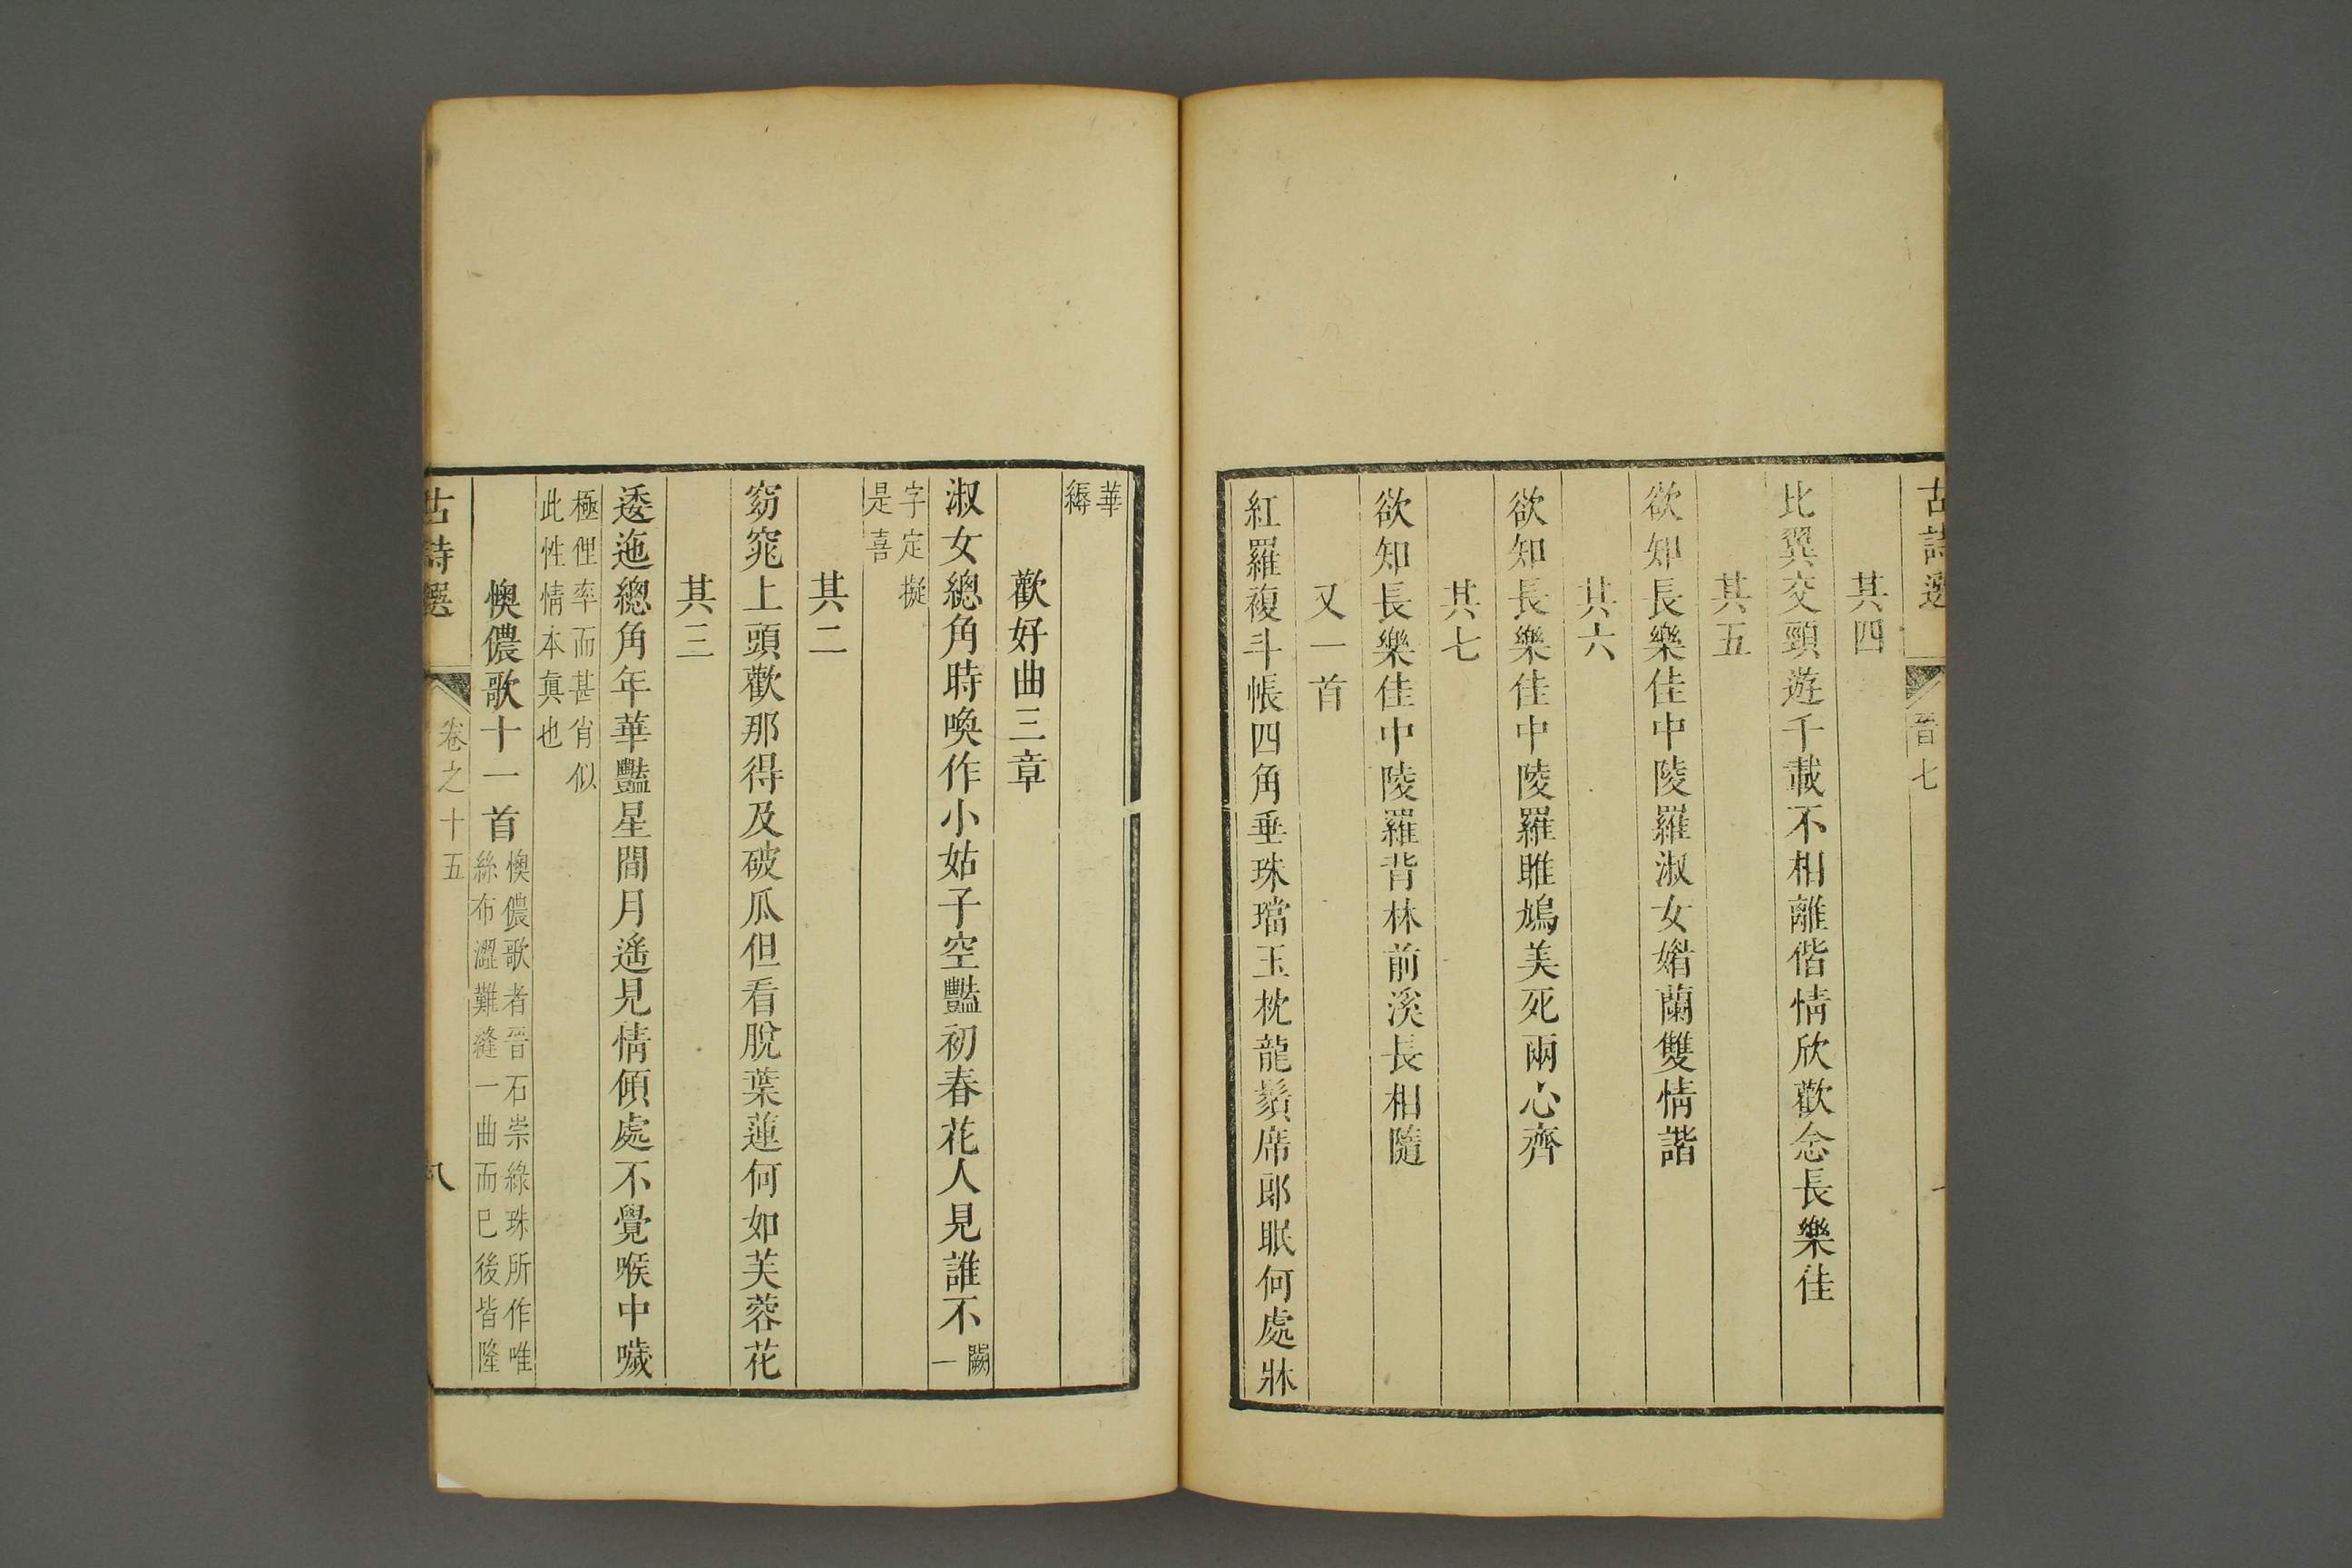 古詩選
晉七
其四
比翼交頸遊千載不相離偕情欣歡念長樂佳
其五
欲知長樂佳中陵羅淑女媎蘭雙情諧
其六
欲知長樂佳中陵羅雎鳩美死兩心齊
其七
欲知長樂佳中陵羅背林前溪長相隨
又一首
紅羅複斗帳四角垂珠璫玉枕龍鬚席郎眠何處牀
華
縟
歡好曲三章
淑女總角時喚作小姑子空豔初春花人見誰不闕一
字定擬
是喜
其二
窈窕上頭歡那得及破瓜但看脫葉蓮何如芙蓉花
其三
逶迤總角年華豔星間月遙見情傾處不覺喉中噦
極俚率而甚肖似
此性情本真也
懊儂歌十一首
懊儂歌者晉石崇綠珠所作唯
絲布澀難縫一曲而已後皆隆
古詩選
卷之十五
八